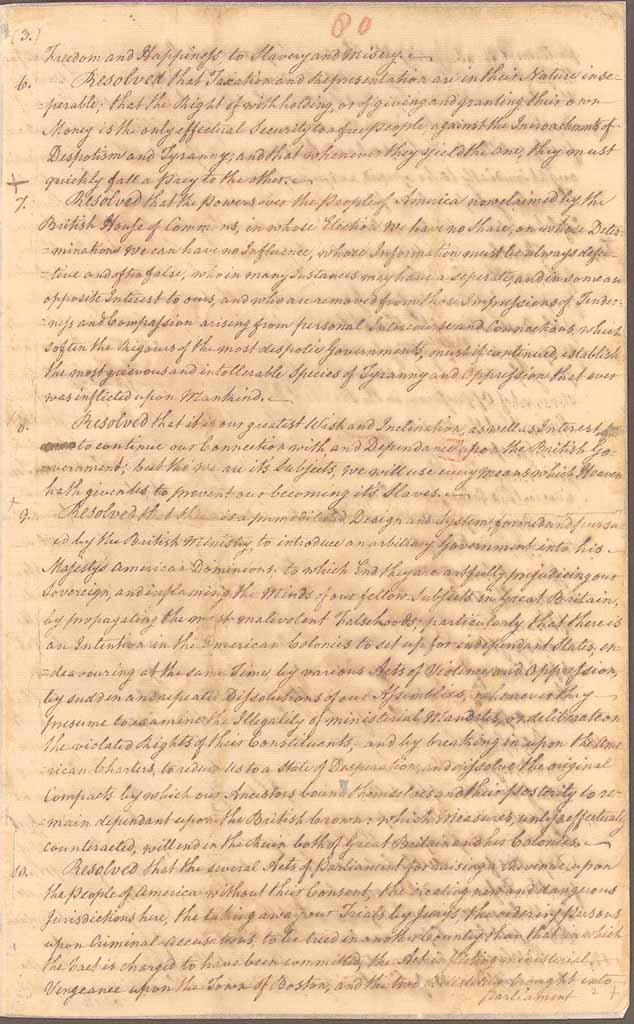 (3.) 80
Freedom and Happiness to Slavery and Misery.
6. Resolved that Taxation and Representation are in their Nature inse-
=perable; that the Right of withholding, or of giving and granting their own
Money is the only effectual Security to a free People, against the Incroachments of
Despotism and Tyranny; and that whenever they yield the One, they must
quickly fall a Prey to the other.
7. Resolved that the Powers over the People of America now claimed by the
British House of Commons, in whose Election we have no Share, on whose Deter-
=minations we can have no Influence, whose Information must be always defec-
=tive and often false, who in many Instances may have a seperate, and in some an
opposite Interest to ours, and who are removed from those Impressions of Tender-
=ness and Compassion arising from personal Intercourse and Connections, which
soften the Rigours of the most despotic Governments, must if continued, establish
the most grievous and intollerable Species of Tyranny and Oppression, that ever
was inflicted upon Mankind.
8. Resolved that it is our greatest Wish and Inclination, as well as Interest,
to continue our Connection with, and Dependance upon the British Go-
=vernment; but tho' we are it's Subjects, we will use every Means which Heaven
hath given Us to prevent our becoming it's Slaves.
9. Resolved that there is a premeditated Design and System, formed and pursu-
=ed by the British Ministry, to introduce an arbitrary Government into his
Majesty's American Dominions; to which End they are artfully prejudicing our
Sovereign, and inflaming the Minds of our fellow-Subjects in Great Britain,
by propagating the most malevolent Falsehoods; particularly that there is
an Intention in the American Colonies to set up for independant States; en-
=deavouring at the same Time, by various Acts of Violence and Oppression,
by sudden and repeated Dissolutions of our Assemblies, whenever they
presume to examine the Illegality of ministerial Mandates, or deliberate on
the violated Rights of their Constituents, and by breaking in upon the Ame-
=rican Charters, to reduce Us to a State of Desperation, and dissolve the original
Compacts by which our Ancestors bound themselves and their Posterity to re-
=main dependant upon the British Crown: which Measures, unless effectually
counteracted, will end in the Ruin both of Great Britain and her Colonies.
10. Resolved that the several Acts of Parliament for raising a Revenue upon
the People of America without their Consent, the creating new and dangerous
Jurisdictions here, the taking away our Trials by Jurys, the ordering Persons
upon Criminal Accusations, to be tried in another Country than that in which
the Fact is charged to have been committed, the Act inflicting ministerial
Vengeance upon the Town of Boston, and the two Bills lately brought into
Parliament